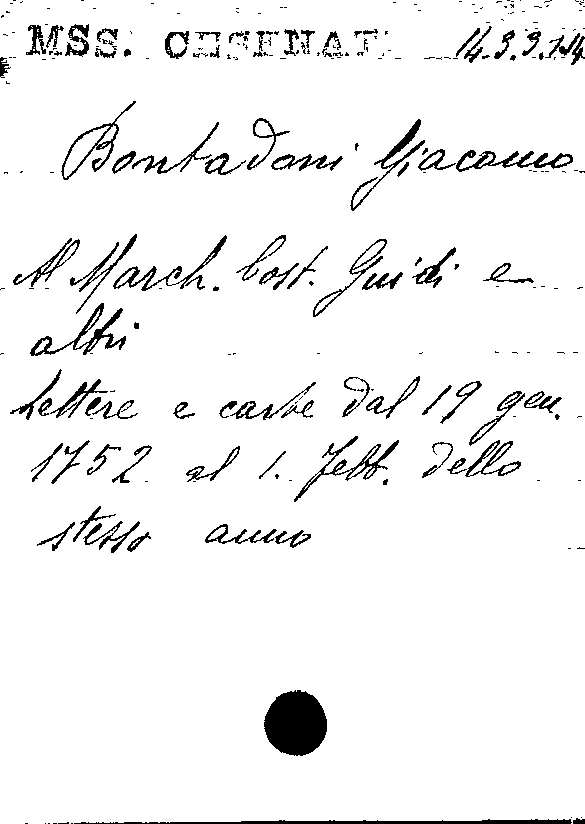 MSS. CESENAT. 14.3.3.1.14
Bontadoni Giacomo
Al March. Cost. Guidi e
altri
Lettere e carte dal 19 gen.
1752 al 1. febb. dello
stesso anno